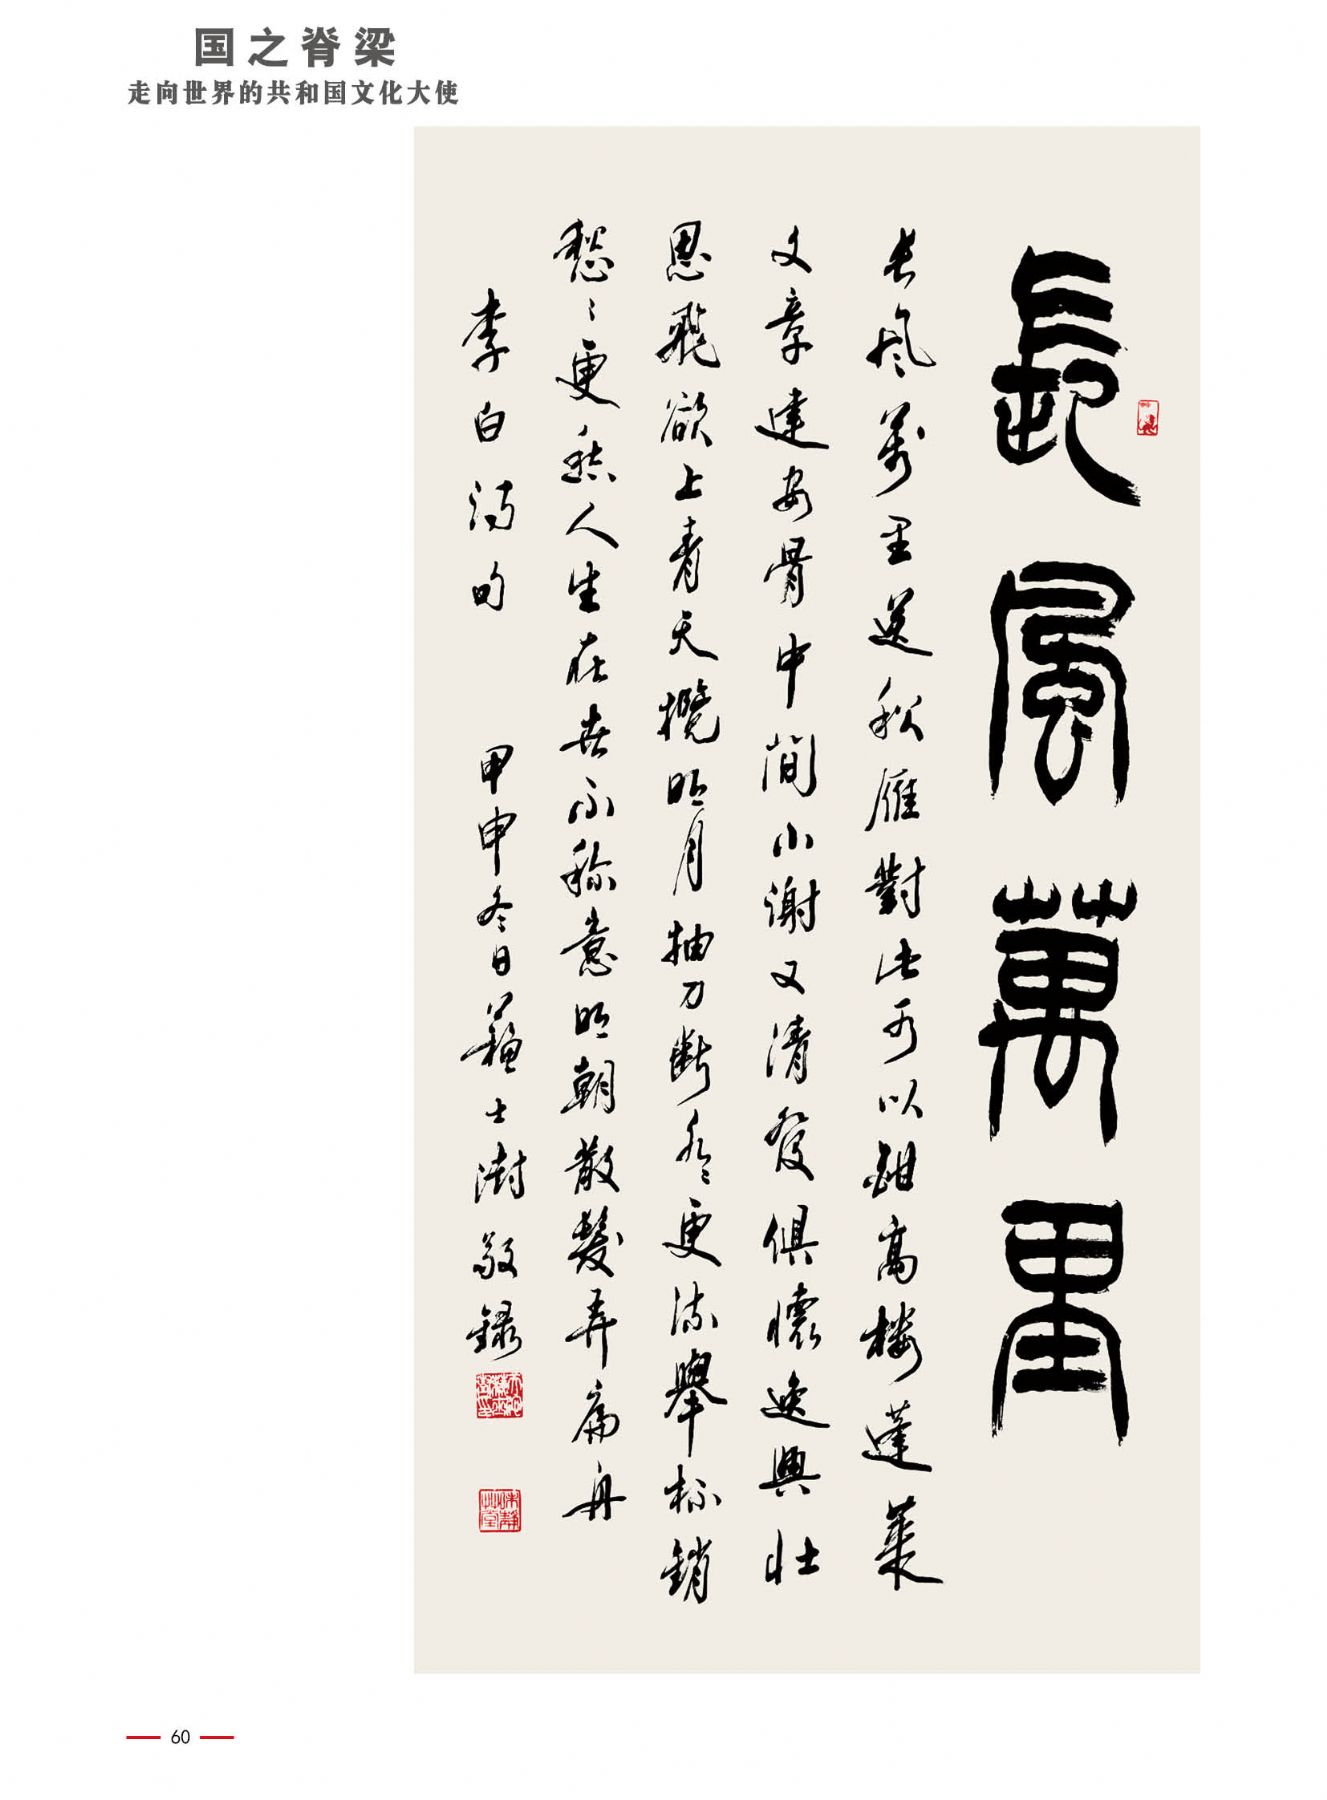 国之脊梁
走向世界的共和国文化大使
長風萬里
长风万里送秋雁對此可以酣高楼蓬莱
文章建安骨中间小謝又清發俱懷逸興壮
思飛欲上青天欖明月抽刀断水更流舉杯銷
愁〻更愁人生在世不称意明朝散髮弄扁舟
李白诗句 甲申冬日蘇士澍敬録
60